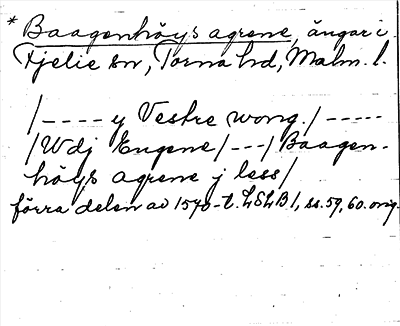 * Baagenhöys agrene, ängar i
Fjelie sn, Torna hd, Malm. l.
/---- y Vestre wong. /-----
/Wdj Engene/---/Baagen-
höys agrene j less/
förra delen av 1570-t. LSLB 1, ss. 59, 60. orig.